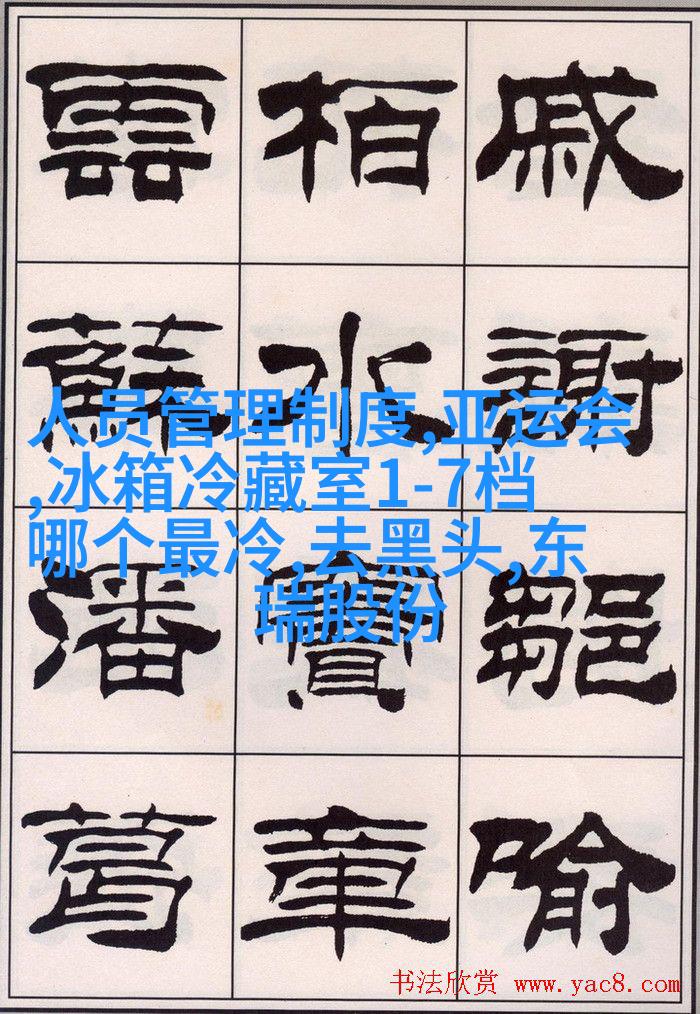 戚謝鄒喻
柏水竇章
雲蘇潘葛
人员管理制度,亚运会
,冰箱冷藏室1-7档
哪个最冷,去黑头,东
瑞股份
书法欣赏 www.yac8.com